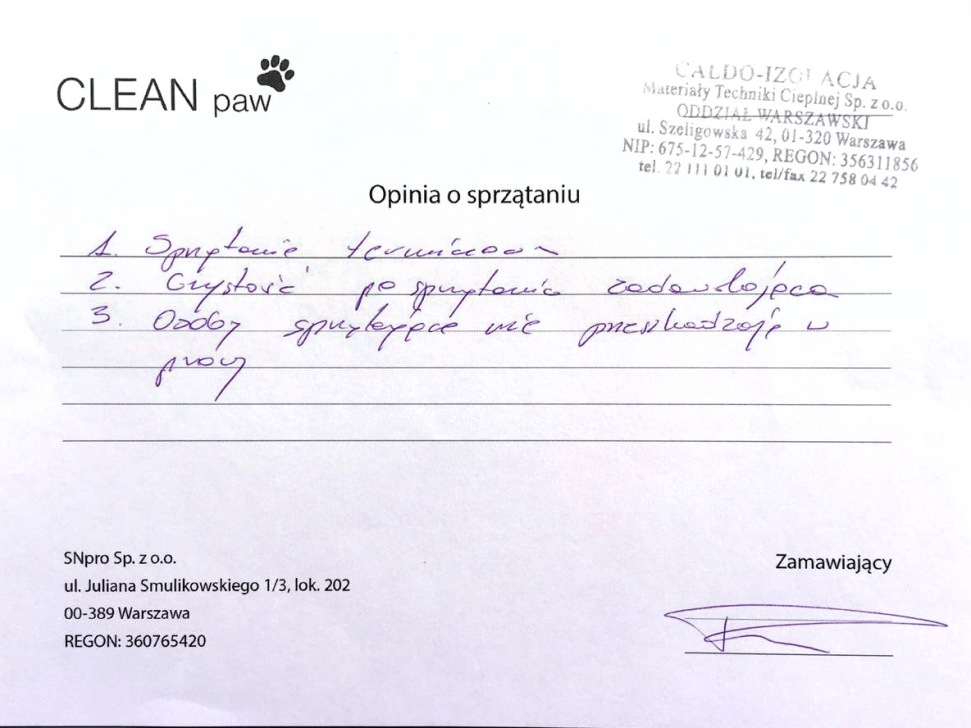 CLEAN paw
CALDO-IZOLACJA
Materiały Techniki Cieplnej Sp. z o.o.
ODDZIAŁ WARSZAWSKI
ul. Szeligowska 42, 01-320 Warszawa
NIP: 675-12-57-429, REGON: 356311856
tel. 22 111 01 01, tel/fax 22 758 04 42
Opinia o sprzątaniu
1. Sprzątanie terminowe
2. Czystość po sprzątaniu zadowalająca
3. Osoby sprzątające nie przeszkadzają w
pracy
SNpro Sp. z o.o.
ul. Juliana Smulikowskiego 1/3, lok. 202
00-389 Warszawa
REGON: 360765420
Zamawiający